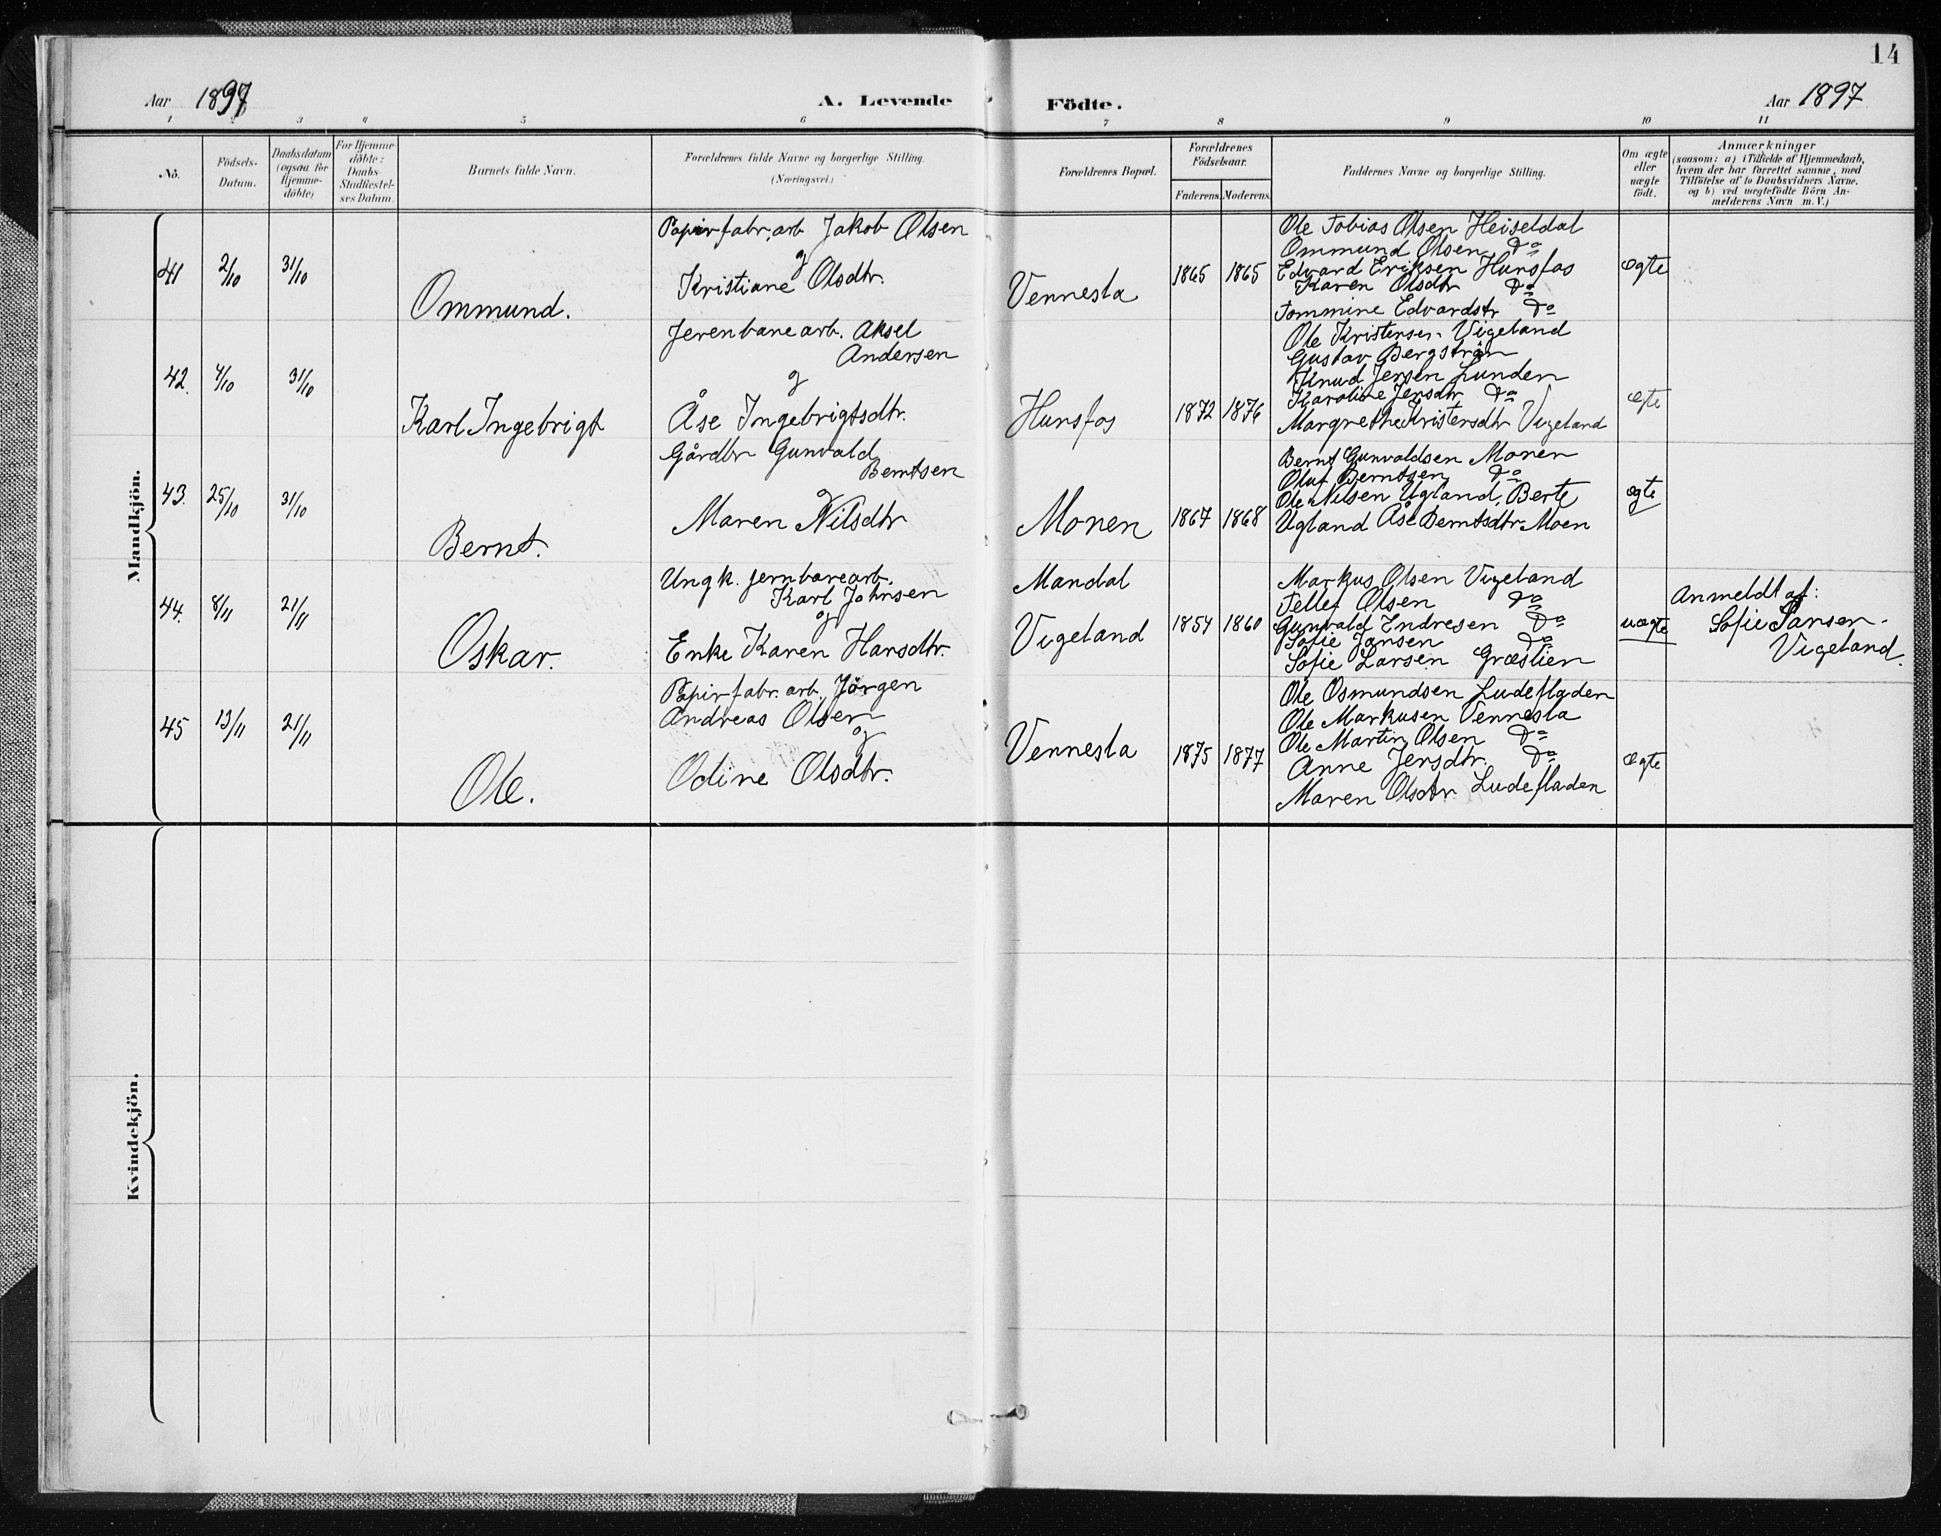 14
Aar 1897 A. Levende Födte. Aar 1897
1 2 3 4 5 6 7 8 9 10 11
No.
Födsels-Datum.
Daabsdatum (ogsaa for Hjemmedöbte)
For Hjemmedöbte: Daabs-Stadfæstelses Datum.
Barnets fulde Navn.
Forældrenes fulde Navne og borgerlige Stilling.
(Næringsvei.)
Forældrenes Bopæl.
Forældrenes Födselsaar.
Faderens. Moderens.
Faddernes Navne og borgerlige Stilling.
Om ægte eller uægte födt.
Anmærkninger
(saasom: a) i Tilfælde af Hjemmedaab,
hvem der har forrettet samme, med
Tilföielse af to Daabsvidners Navne,
og b) ved uægtefödte Börn An-
melderens Navn m. V.)
Mandkjön.
41 2/10 31/10 Ommund.
Papirfabr. arb Jakob Olsen
og
Kristiane Olsdtr.
Vennesla 1865 1865
Ole Tobias Olsen Heiseldal
Ommund Olsen do
Edvard Eriksen Hunsfos
Karen Olsdtr do
Tommine Edvardstr do
ægte
42. 4/10 31/10 Karl Ingebrigt
Jerenbanearb. Aksel
Andersen
og
Åse Ingebrigtsdtr.
Hunsfos 1872 1876
Ole Kristensen Vigeland
Gustav Bergström
Knud Jensen Lunden
Karoline Jensdtr do
Margrethe Kristensdtr Vigeland
ægte
43. 25/10 31/10 Bernt.
Gårdbr Gunvald
Berntsen
og
Maren Nilsdtr
Monen 1867 1868
Bernt Gunvaldsen Monen
Oluf Berntsen do
Ole Nilsen Ugland, Berte
Ugland Åse Berntsdtr Moen
ægte
44. 8/11 21/11 Oskar.
Ungk. jernbanearb.
Karl Johnsen
og
Enke Karen Hansdtr.
Mandal
Vigeland 1854 1860
Markus Olsen Vigeland
Tellef Olsen do
Gunvald Endresen do
Sofie Jansen do
Sofie Larsen Græslien
uægte
Anmeldt af:
Sofie Jansen
Vigeland.
45 13/11 21/11 Ole.
Papirfabr. arb. Jörgen
Andreas Olsen
og
Odine Olsdtr.
Vennesla 1875 1877
Ole Osmundsen Ludefladen
Ole Markusen Vennesla
Ole Martin Olsen do
Anne Jensdtr. do
Maren Olsdtr Ludefladen
ægte
Kvindekjön.